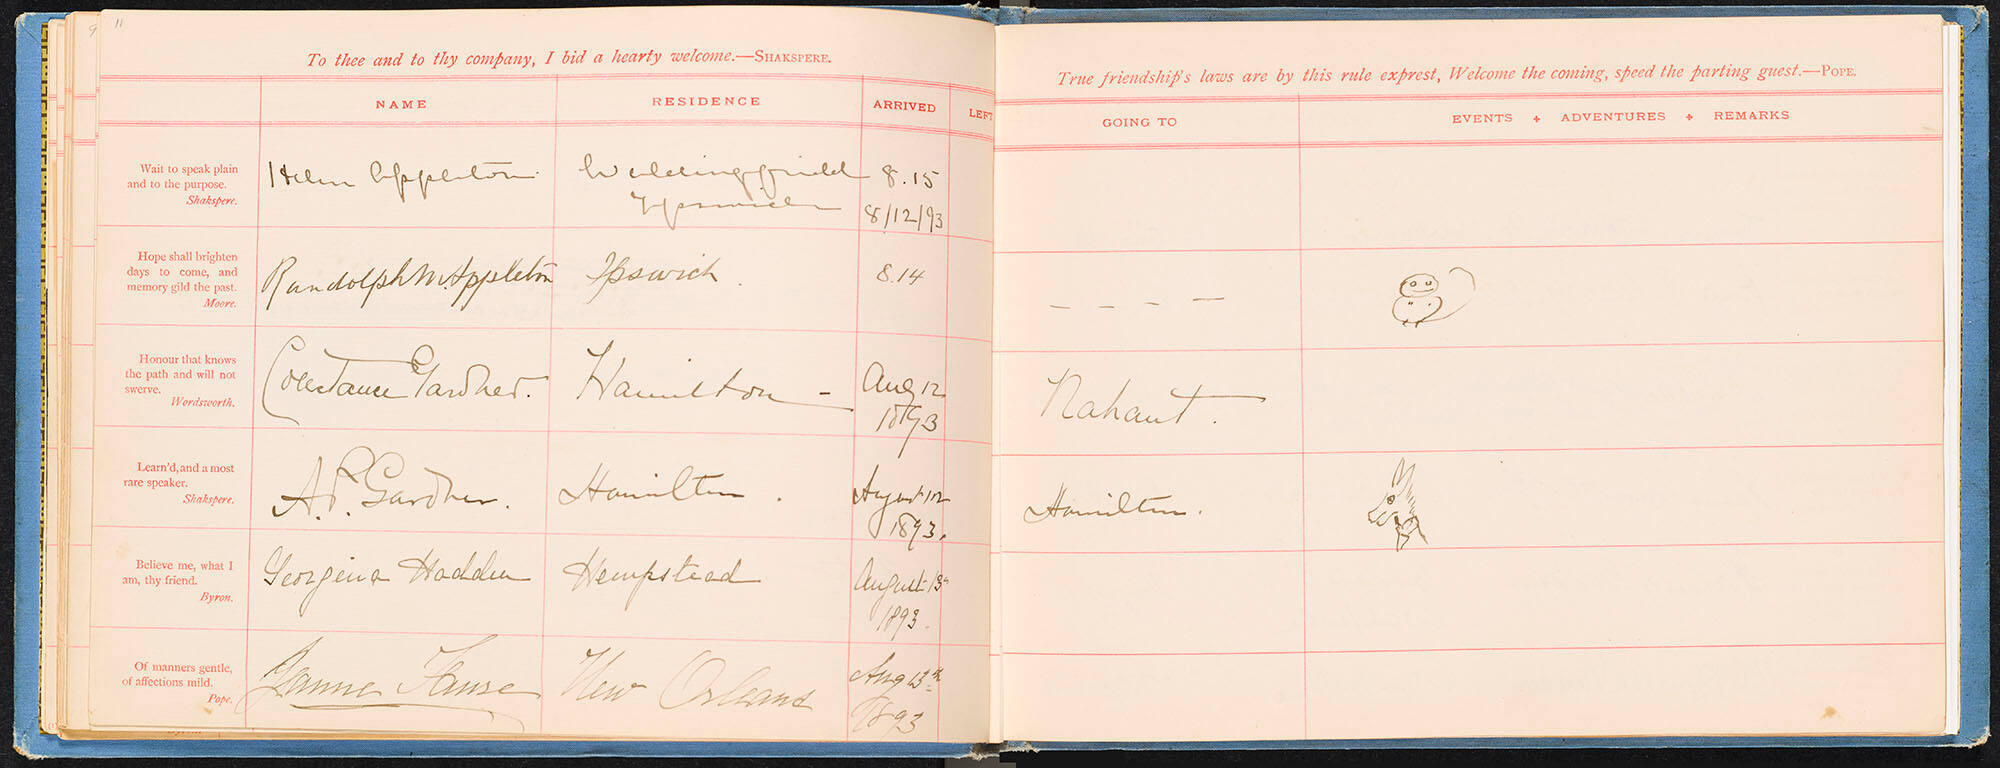 9 11
To thee and to thy company, I bid a hearty welcome.—SHAKSPERE.
NAME RESIDENCE ARRIVED LEFT
Wait to speak plain
and to the purpose.
Shakspere.
Helen Appleton Waldingfield
Ipswich
8.15
8/12/93
Hope shall brighten
days to come, and
memory gild the past.
Moore.
Randolph M. Appleton Ipswich. 8.14
Honour that knows
the path and will not
swerve.
Wordsworth.
Constance Gardner. Hamilton – Aug 12
1893
Learn'd, and a most
rare speaker.
Shakspere.
A. P. Gardner. Hamilton. August 12
1893.
Believe me, what I
am, thy friend.
Byron.
Georgina Hadden Hempstead August 13th
1893.
Of manners gentle,
of affections mild.
Pope.
New Orleans Aug 13th
1893
True friendship's laws are by this rule exprest, Welcome the coming, speed the parting guest.—POPE.
GOING TO EVENTS + ADVENTURES + REMARKS
– – – –
Nahant.
Hamilton.